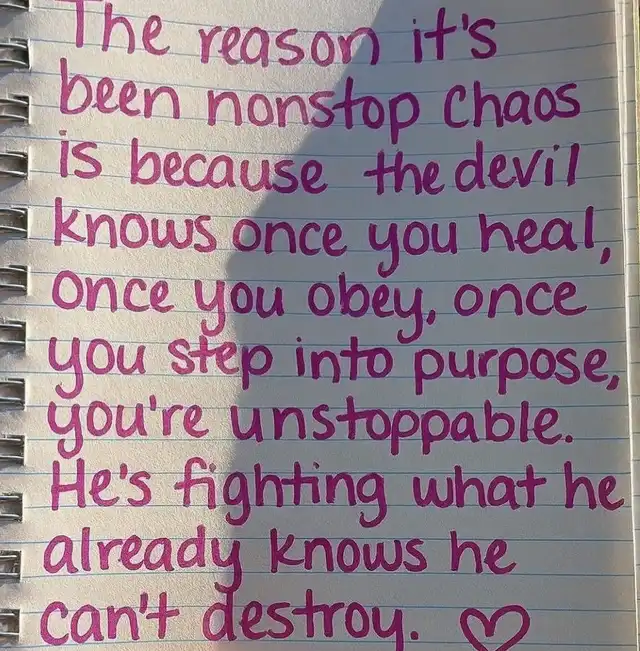 The reason it's
been nonstop chaos
is because the devil
knows once you heal,
once you obey, once
you step into purpose,
you're unstoppable.
He's fighting what he
already knows he
can't destroy. ♡